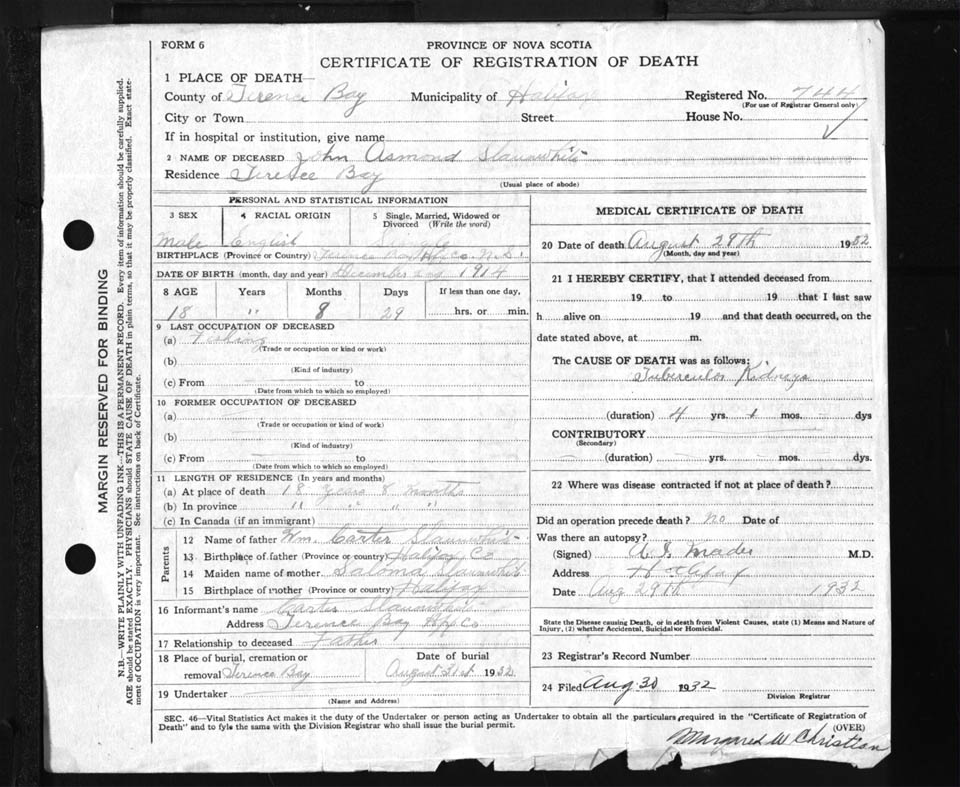 FORM 6
PROVINCE OF NOVA SCOTIA
CERTIFICATE OF REGISTRATION OF DEATH
1 PLACE OF DEATH—
County of Terence Bay Municipality of Halifax Registered No. 744
(For use of Registrar General only)
City or Town Street House No.
If in hospital or institution, give name
2 NAME OF DECEASED John Asmond Slaunwhite
Residence Terence Bay
(Usual place of abode)
PERSONAL AND STATISTICAL INFORMATION
3 SEX 4 RACIAL ORIGIN 5 Single, Married, Widowed or Divorced (Write the word)
Male English Single
BIRTHPLACE (Province or Country) Terence Bay Hfx Co. N.S.
DATE OF BIRTH (month, day and year) December 1914
8 AGE Years Months Days If less than one day,
18 " 8 29 hrs. or min.
9 LAST OCCUPATION OF DECEASED
(a) Fishing
(Trade or occupation or kind or work)
(b)
(Kind of industry)
(c) From to
(Date from which to which so employed)
10 FORMER OCCUPATION OF DECEASED
(a)
(Trade or occupation or kind of work)
(b)
(Kind of industry)
(c) From to
(Date from which to which so employed)
11 LENGTH OF RESIDENCE (In years and months)
(a) At place of death 18 years 8 months
(b) In province " " " "
(c) In Canada (if an immigrant)
Parents
12 Name of father Wm. Carter Slaunwhite
13 Birthplace of father (Province or country) Halifax Co
14 Maiden name of mother Saloma Slaunwhite
15 Birthplace of mother (Province or country) Halifax
16 Informant's name Carter Slaunwhite
Address Terence Bay Hfx Co
17 Relationship to deceased Father
18 Place of burial, cremation or removal Terence Bay
Date of burial August 31st 1932
19 Undertaker
(Name and Address)
MEDICAL CERTIFICATE OF DEATH
20 Date of death August 29th 1932
(Month, day and year)
21 I HEREBY CERTIFY, that I attended deceased from
19 to 19 that I last saw
h alive on 19 and that death occurred, on the
date stated above, at m.
The CAUSE OF DEATH was as follows:
Tuberculos Kidneys
(duration) 4 yrs. 1 mos. dys
CONTRIBUTORY
(Secondary)
(duration) yrs. mos. dys.
22 Where was disease contracted if not at place of death?
Did an operation precede death? no Date of
Was there an autopsy?
(Signed) M.D.
Address Halifax
Date Aug 29th 1932
State the Disease causing Death, or in death from Violent Causes, state (1) Means and Nature of
Injury, (2) whether Accidental, Suicidal or Homicidal.
23 Registrar's Record Number
24 Filed Aug 30 1932
Division Registrar
SEC. 46—Vital Statistics Act makes it the duty of the Undertaker or person acting as Undertaker to obtain all the particulars required in the "Certificate of Registration of
Death" and to fyle the same with the Division Registrar who shall issue the burial permit.
(OVER)
Margaret W Christian
MARGIN RESERVED FOR BINDING
N.B.—WRITE PLAINLY WITH UNFADING INK—THIS IS A PERMANENT RECORD. Every item of information should be carefully supplied.
AGE should be stated EXACTLY. PHYSICIANS should STATE CAUSE OF DEATH in plain terms, so that it may be properly classified. Exact state-
ment of OCCUPATION is very important. See instructions on back of Certificate.